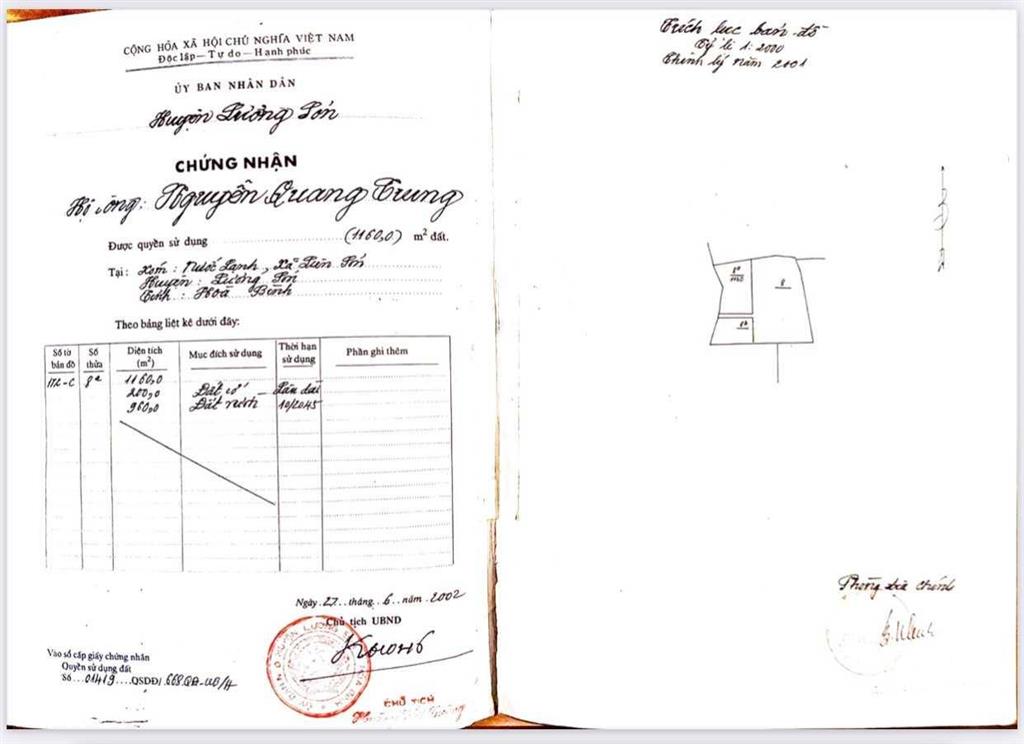 CỘNG HÒA XÃ HỘI CHỦ NGHĨA VIỆT NAM
Độc lập - Tự do - Hạnh phúc
ỦY BAN NHÂN DÂN
Huyện Lương Sơn
CHỨNG NHẬN
Hộ ông: Nguyễn Quang Trung
Được quyền sử dụng (1160,0) m² đất.
Tại: Xóm: Nước Lạnh, Xã Liên Sơn
Huyện: Lương Sơn
Tỉnh: Hoà Bình
Theo bảng liệt kê dưới đây:
Số tờ bản đồ Số thửa Diện tích (m²) Mục đích sử dụng Thời hạn sử dụng Phần ghi thêm
8a 1160,0
200,0 Đất ở Lâu dài
960,0 Đất vườn 10/2045
Ngày 27 tháng 6 năm 2002
Chủ tịch UBND
CHỦ TỊCH
Vào sổ cấp giấy chứng nhân
Quyền sử dụng đất
Số 01419 QSDĐ/
Trích lục bản đồ
Tỷ lệ 1:2000
Chỉnh lý năm 2001
8a
1160
8
Phòng địa chính